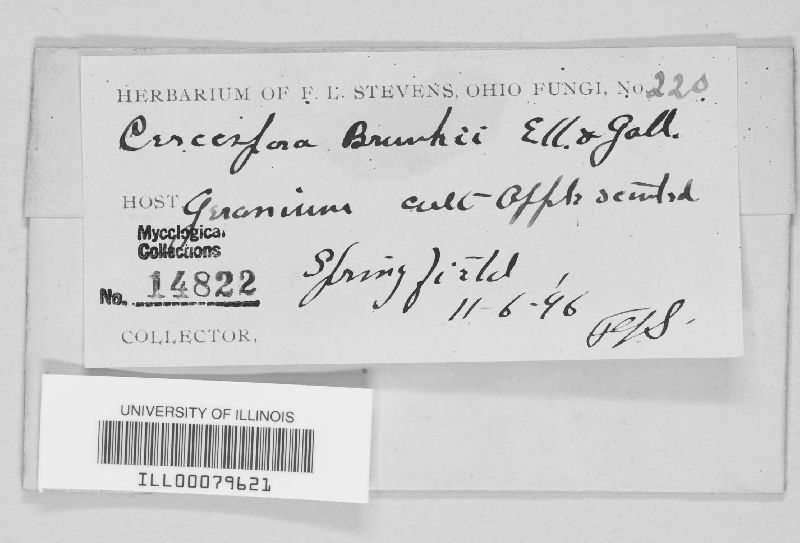 HERBARIUM OF F. L. STEVENS, OHIO FUNGI, No. 220
Cercospora Brunkii Ell. & Gall.
HOST, Geranium cult Apple scented
Mycological
Collections
No. 14822
Springfield
11-6-96
COLLECTOR, FLS.
UNIVERSITY OF ILLINOIS
ILL00079621